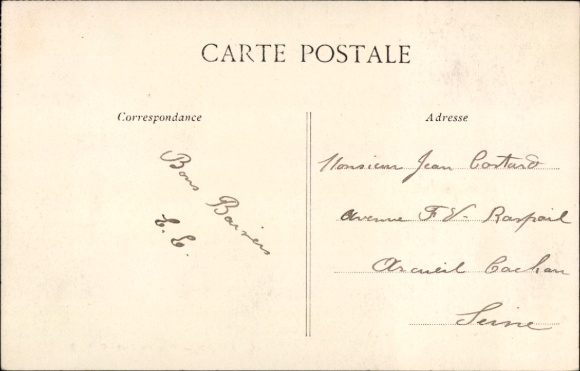 CARTE POSTALE
Correspondance
Adresse
Bons Baisers
Monsieur Jean
Avenue F V. Raspail
Arcueil Cachan
Seine